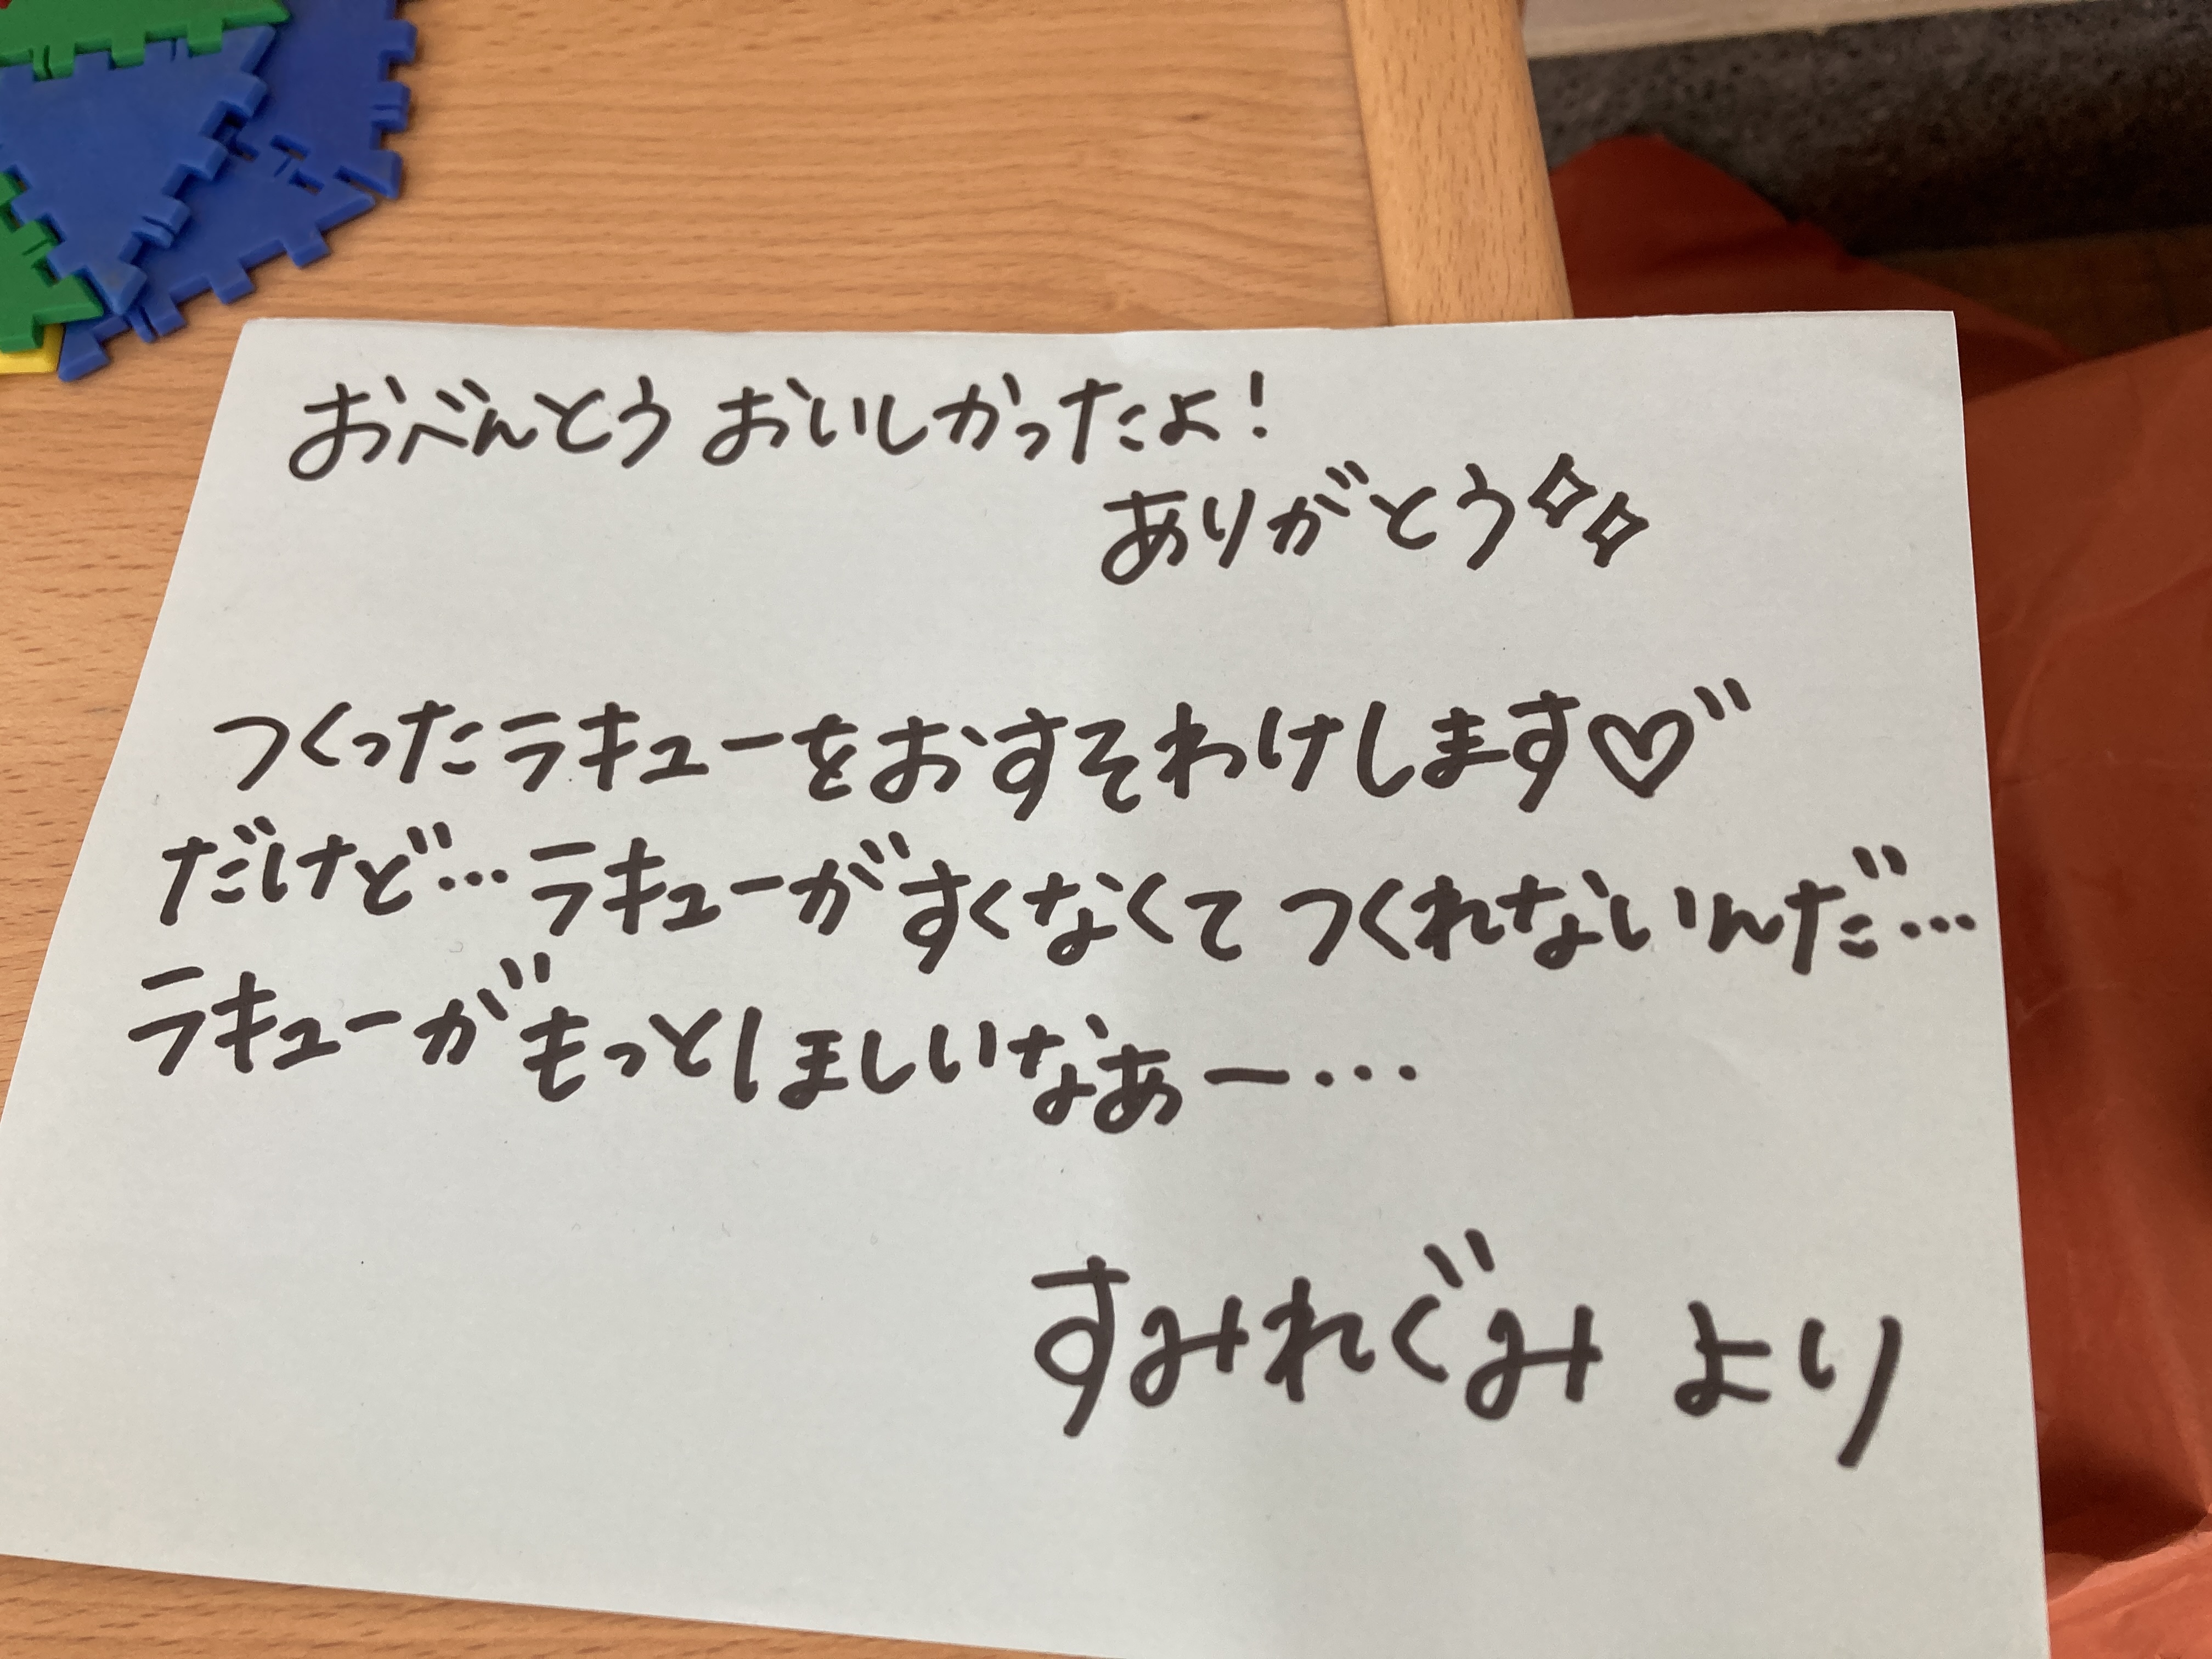 おべんとう おいしかったよ!
ありがとう✧✧
つくったラキューをおすそわけします♡゛
だけど…ラキューがすくなくて つくれないんだ…
ラキューがもっとほしいなあー…
すみれぐみ より